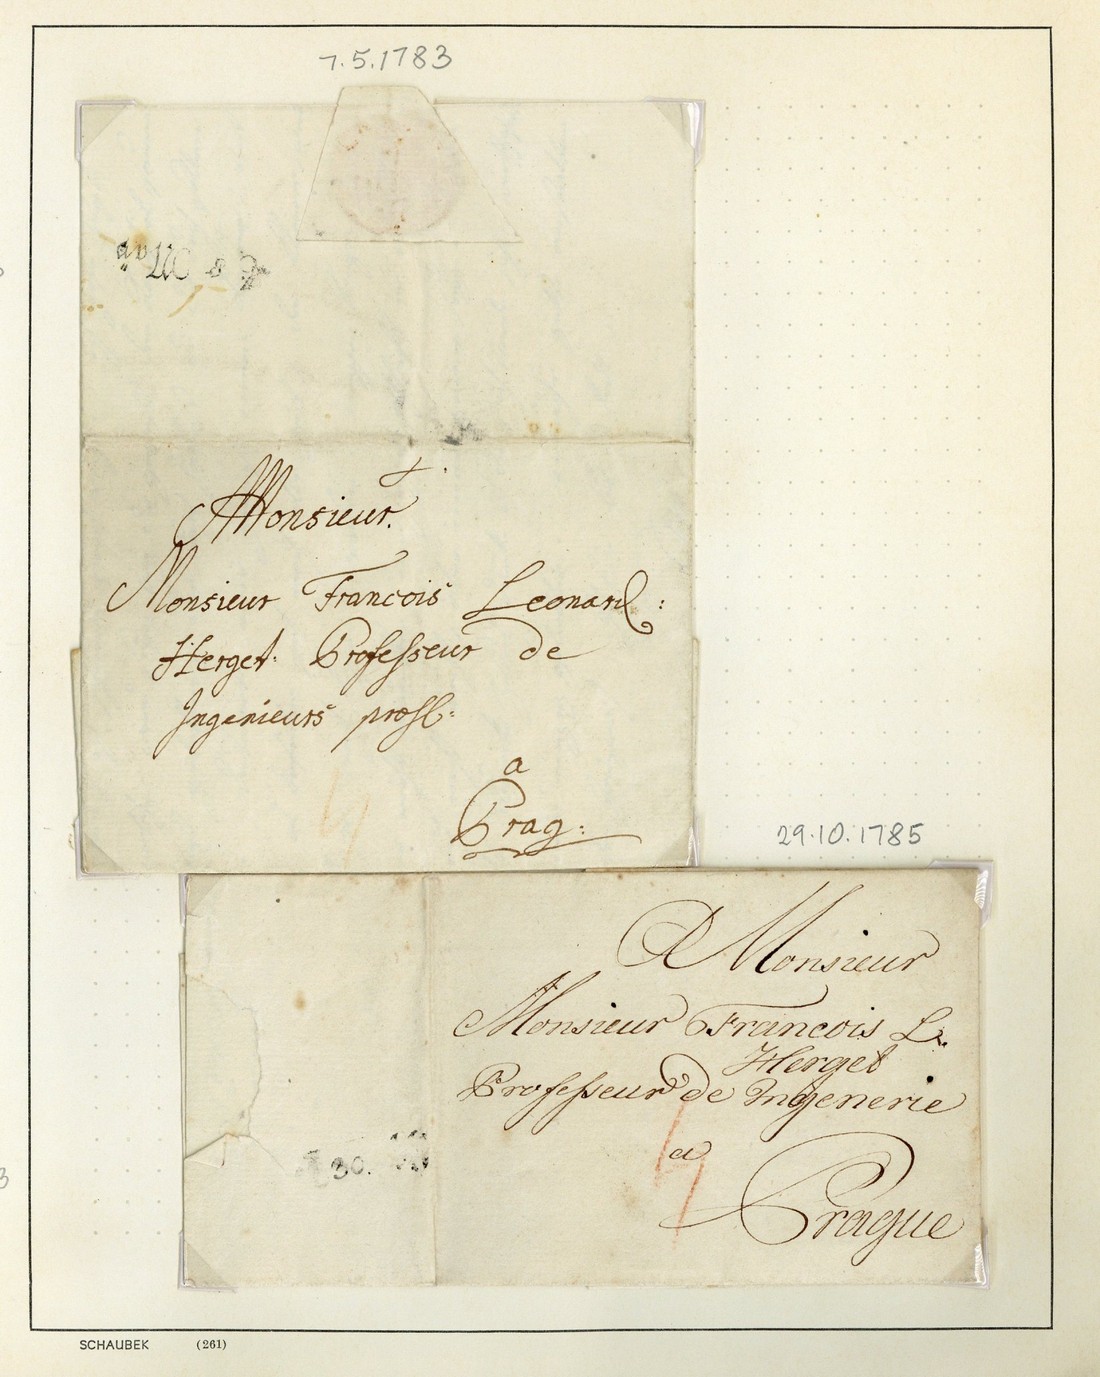 7.5.1783
Monsieur.
Monsieur Francois Leonard:
Herget. Professeur de
Ingenieurs
a
Prag:
29.10.1785
A Monsieur
Monsieur Francois L.
Herget
Professeur de Ingenerie
a
Prague
SCHAUBEK (261)